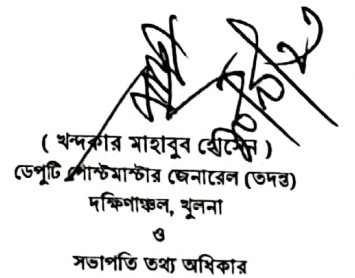 ( খন্দকার মাহাবুব হোসেন )
ডেপুটি পোস্টমাস্টার জেনারেল (তদন্ত)
দক্ষিণাঞ্চল, খুলনা
ও
সভাপতি তথ্য অধিকার